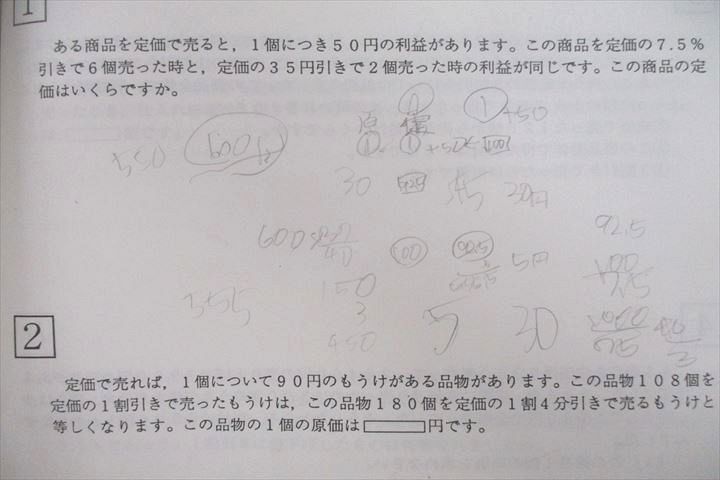 1
ある商品を定価で売ると，１個につき５０円の利益があります。この商品を定価の７.５％
引きで６個売った時と，定価の３５円引きで２個売った時の利益が同じです。この商品の定
価はいくらですか。
① ①+50
原
① ①+50 100
550 600円
30 925 20円
92.5
600 100 92.5 5円
40
150 7.5
555 3 5 30
450 75 3
2
定価で売れば，１個について９０円のもうけがある品物があります。この品物１０８個を
定価の１割引きで売ったもうけは，この品物１８０個を定価の１割４分引きで売るもうけと
等しくなります。この品物の１個の原価は 円です。